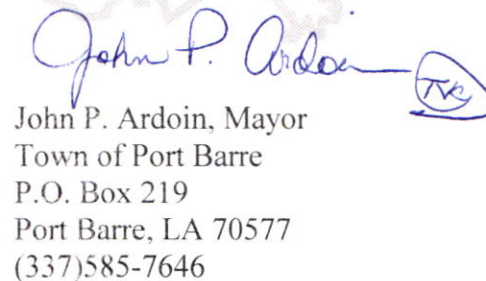 John P. Ardoin
John P. Ardoin, Mayor
Town of Port Barre
P.O. Box 219
Port Barre, LA 70577
(337)585-7646